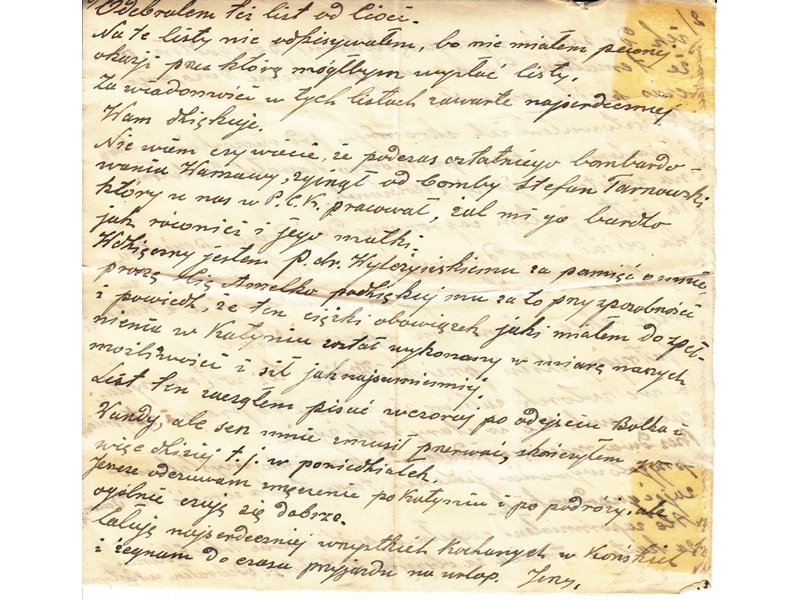 Odebrałem też list od Cioci.
Na te listy nie odpisywałem, bo nie miałem pewnej
okazji przez którą mógłbym wysłać listy.
Za wiadomości w tych listach zawarte najserdeczniej
Wam dziękuję.
Nie wiem czy wiecie, że podczas ostatniego bombardo-
wania Warszawy, zginął od bomby Stefan Tarnowski
który u nas w P.C.K. pracował, żal mi go bardzo
jak również i jego matki.
Wdzięczny jestem P. dr. za pamięć o mnie,
proszę Cię Amelko podziękuj mu za to przy sposobności
i powiedz, że ten ciężki obowiązek jaki miałem do speł-
nienia w Katyniu został wykonany w miarę naszych
możliwości i sił jaknajsumienniej.
List ten zacząłem pisać wczoraj po odejściu Bolka i
Wandy, ale sen mnie zmusił przerwać, skończyłem
więc dzisiaj t.j. w poniedziałek.
Jeszcze odczuwam zmęczenie po Katyniu i po podróży, ale
ogólnie czuję się dobrze.
Całuję najserdeczniej wszystkich Kochanych w Końskich
i żegnam do czasu przyjazdu na urlop. Jerzy.